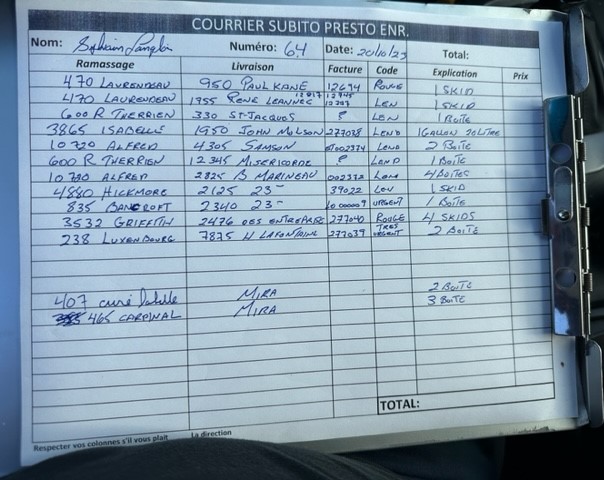 COURRIER SUBITO PRESTO ENR.
Nom: Sylvain Langlois Numéro: 64 Date: 20/10/23 Total:
Ramassage Livraison Facture Code Explication Prix
470 LAURENDEAU 950 PAUL KANE 12694 ROUGE 1 SKID
470 LAURENDEAU 1755 RENE LEANNEC 12817 12745 12707 LEN 1 SKID
600 R THERRIEN 330 ST-JACQUES ? LEN 1 BOITE
3865 ISABELLE 1950 JOHN MOLSON 277038 LEND 1 GALLON 20 LITRE
10 720 ALFRED 4305 SAMSON 002374 LEND 2 BOITE
600 R THERRIEN 12 345 MISERICORDE ? LEND 1 BOITE
10 730 ALFRED 2825 B MARINEAU 002372 4 BOITES
4880 HICKMORE 2125 23- 39022 LEN 1 SKID
835 BANCROFT 2340 23- URGENT 1 BOITE
3532 GRIFFITH 2476 DES ENTREPRISE 277040 ROUGE 4 SKIDS
238 LUXENBOURG 7875 H LAFONTAINE 277039 TRES URGENT 2 BOITE
407 curé MIRA 2 BOITE
465 CARDINAL MIRA 3 BOITE
TOTAL:
Respecter vos colonnes s'il vous plait La direction